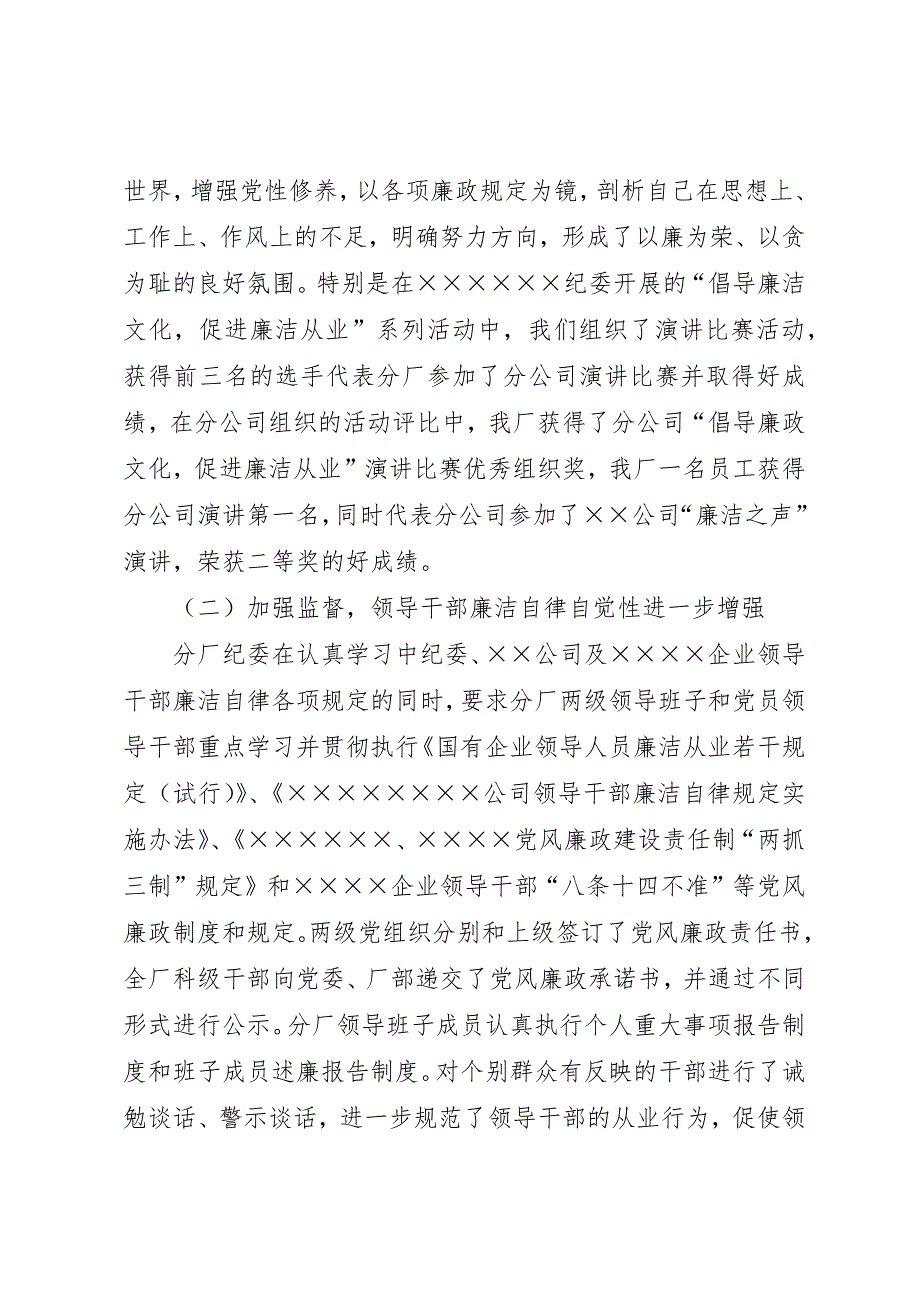 世界，增强党性修养，以各项廉政规定为镜，剖析自己在思想上、
工作上、作风上的不足，明确努力方向，形成了以廉为荣、以贪
为耻的良好氛围。特别是在××××××纪委开展的“倡导廉洁
文化，促进廉洁从业”系列活动中，我们组织了演讲比赛活动，
获得前三名的选手代表分厂参加了分公司演讲比赛并取得好成
绩，在分公司组织的活动评比中，我厂获得了分公司“倡导廉政
文化，促进廉洁从业”演讲比赛优秀组织奖，我厂一名员工获得
分公司演讲第一名，同时代表分公司参加了××公司“廉洁之声”
演讲，荣获二等奖的好成绩。
（二）加强监督，领导干部廉洁自律自觉性进一步增强
分厂纪委在认真学习中纪委、××公司及××××企业领导
干部廉洁自律各项规定的同时，要求分厂两级领导班子和党员领
导干部重点学习并贯彻执行《国有企业领导人员廉洁从业若干规
定（试行）》、《××××××××公司领导干部廉洁自律规定实
施办法》、《××××××、××××党风廉政建设责任制“两抓
三制”规定》和××××企业领导干部“八条十四不准”等党风
廉政制度和规定。两级党组织分别和上级签订了党风廉政责任书，
全厂科级干部向党委、厂部递交了党风廉政承诺书，并通过不同
形式进行公示。分厂领导班子成员认真执行个人重大事项报告制
度和班子成员述廉报告制度。对个别群众有反映的干部进行了诫
勉谈话、警示谈话，进一步规范了领导干部的从业行为，促使领